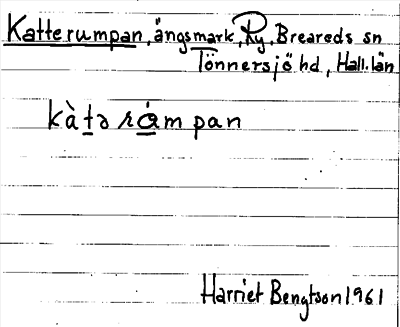 Katterumpan, ängsmark, Ry, Breareds sn
Tönnersjö hd, Hall. län
kàtə rǻmpan
Harriet Bengtson 1961